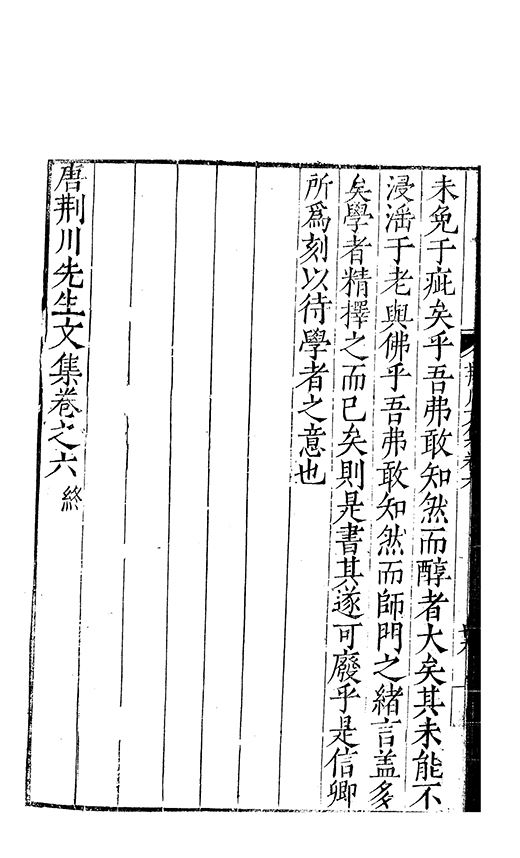 未免于疵矣乎吾弗敢知然而醇者大矣其未能不
浸淫于老與佛乎吾弗敢知然而師門之緒言盖多
矣學者精擇之而已矣則是書其遂可廢乎是信卿
所爲刻以待學者之意也
唐荆川先生文集卷之六 終